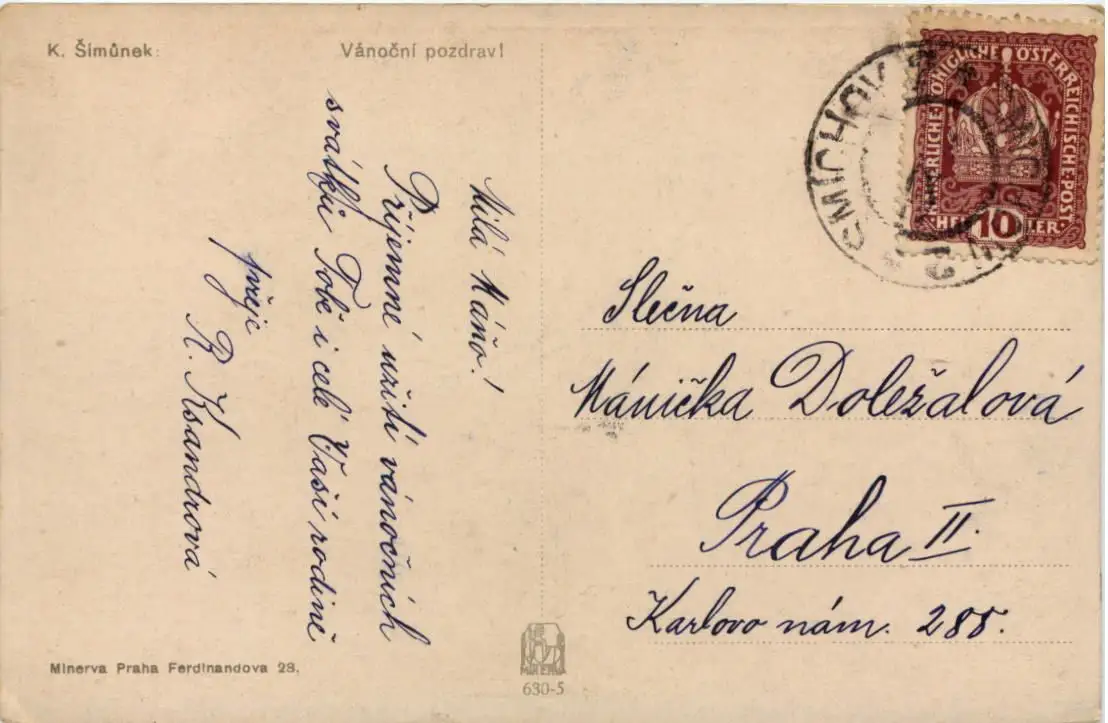 K. Šimůnek:
Vánoční pozdrav!
Milá Máňo!
Příjemné užití vánočních
svátků Tobě i celé Vaší rodině
přeje
R. Ksandrová
SMÍCHOV
KAISERLICHE·KÖNIGLICHE ÖSTERREICHISCHE·POST
HELLER
10
Slečna
Mánička Doležalová
Praha II.
Karlovo nám. 288.
Minerva Praha Ferdinandova 28.
MINERVA
630-5